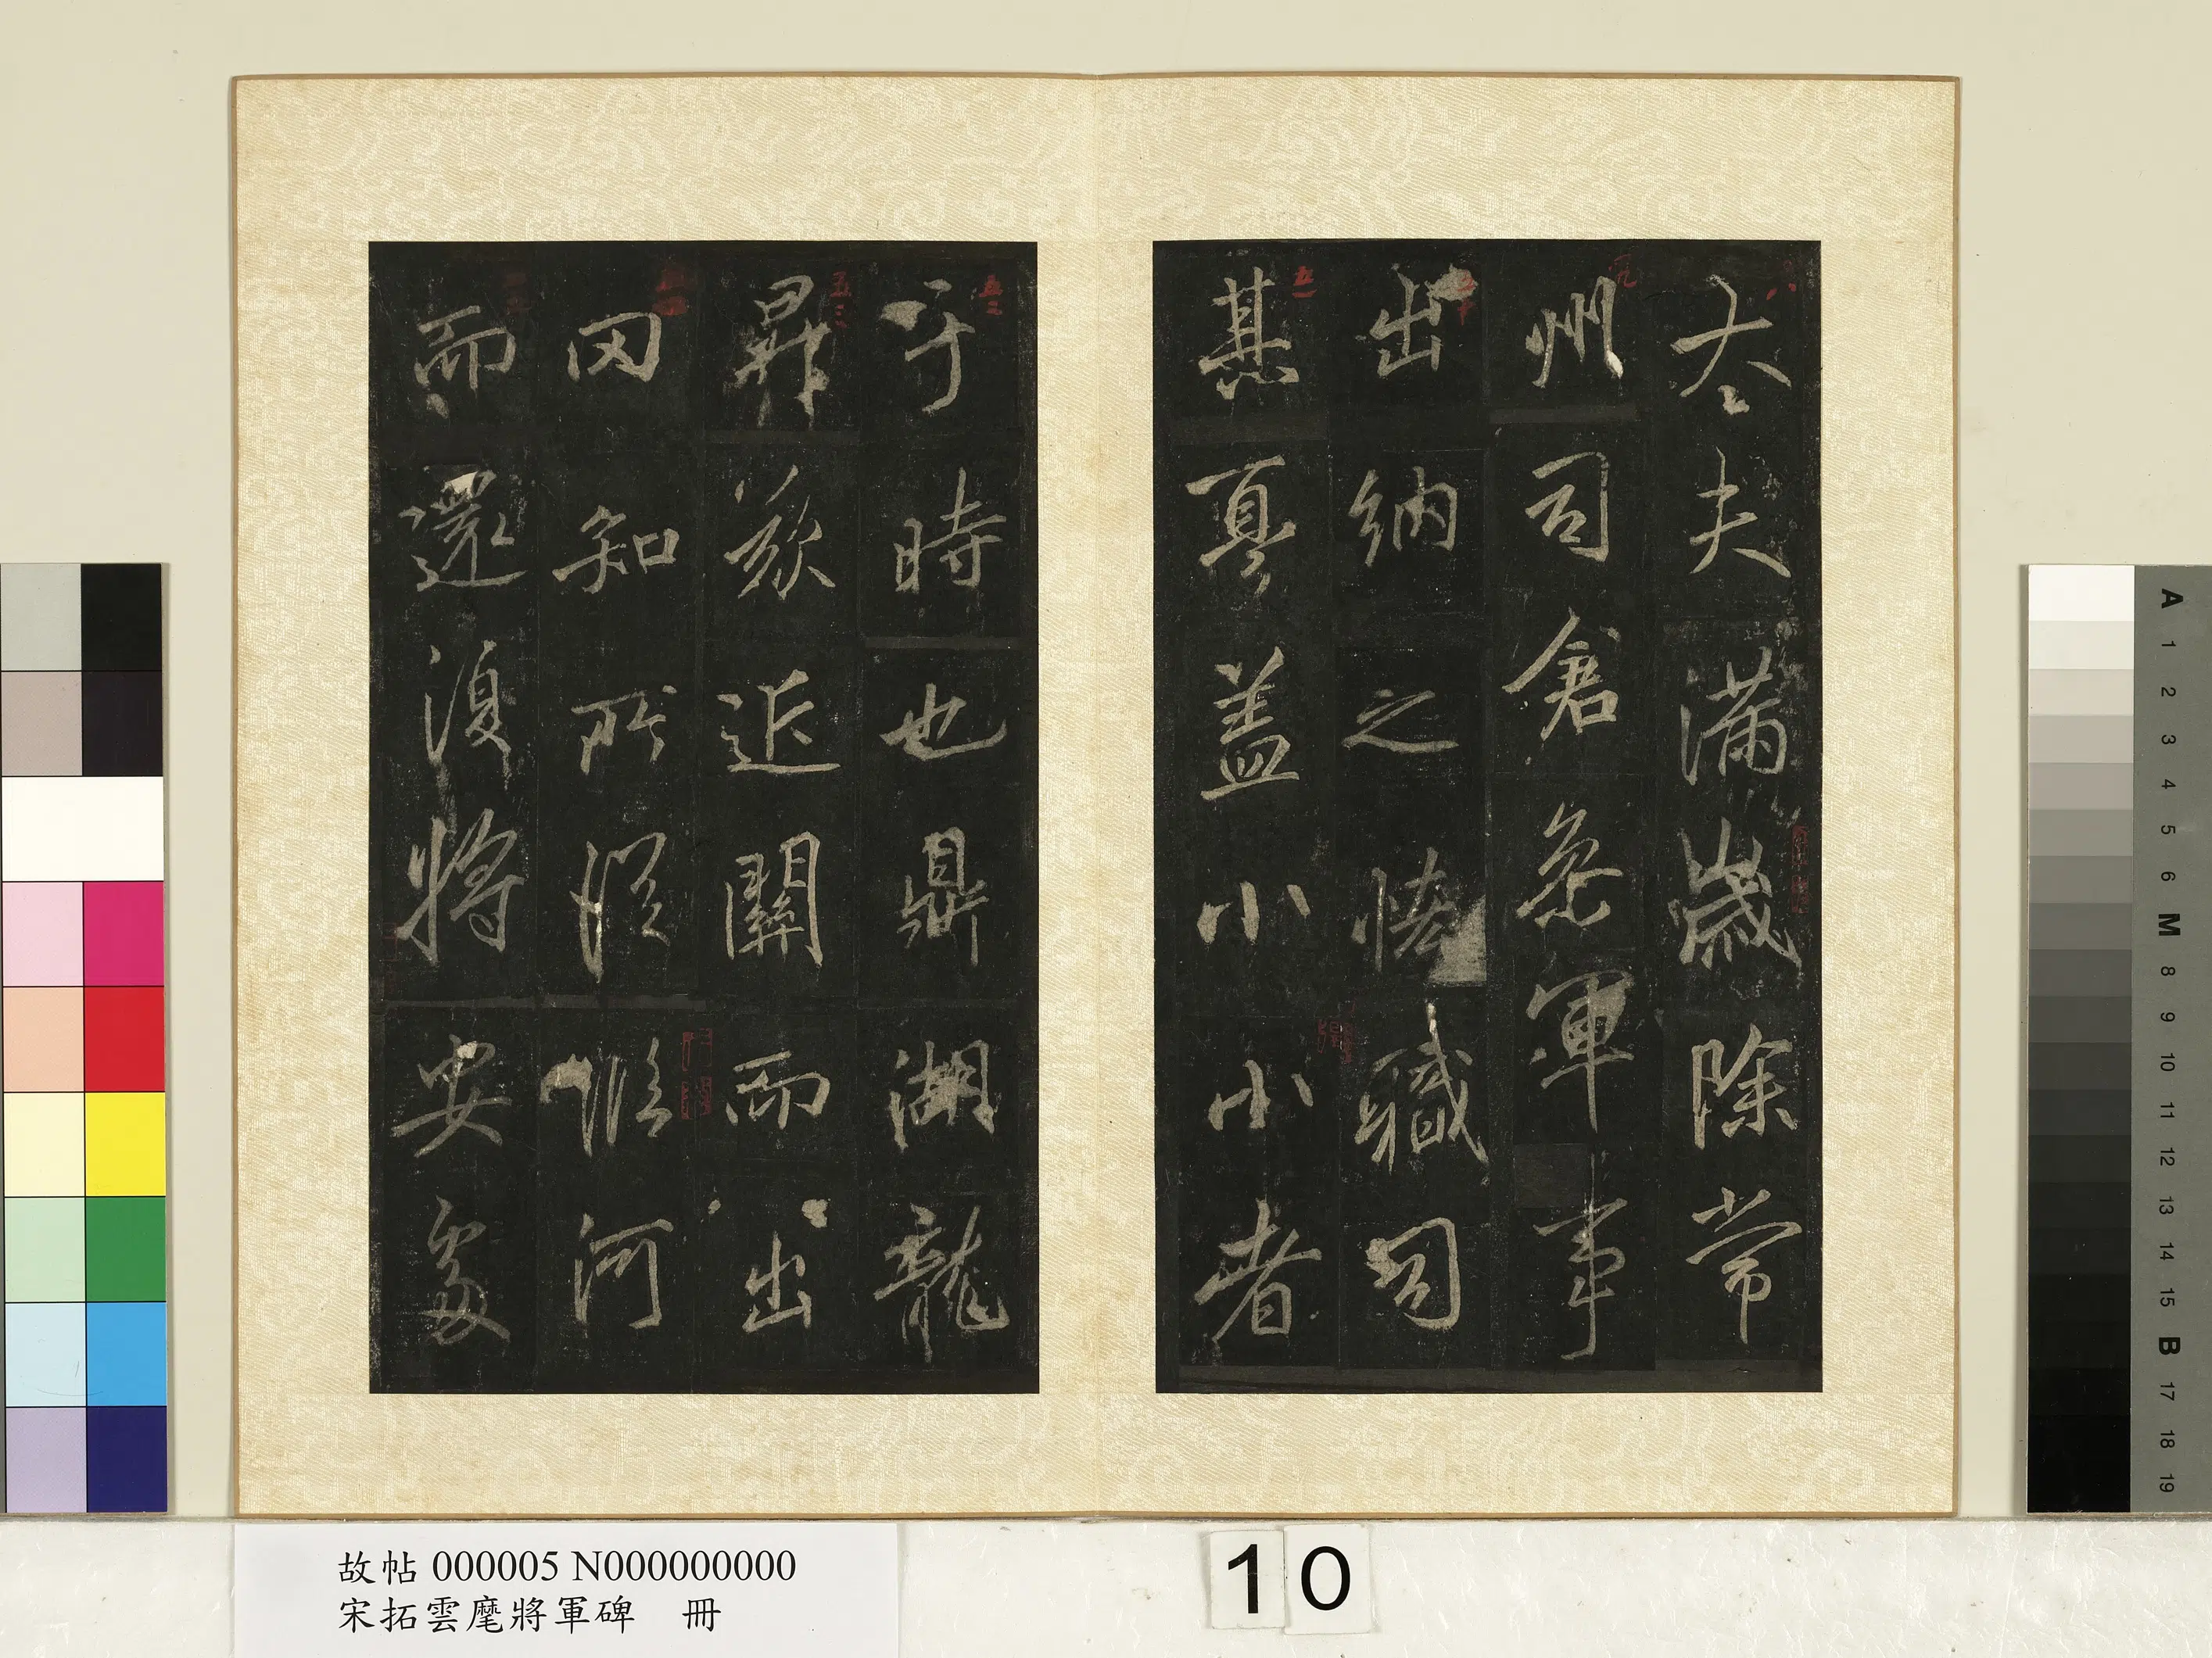 太夫滿歲除常
州司倉叅軍事
出納之恡職司
其憂盖小小者
于時也鼎湖龍
昇欲近關而出
罔知所從臨河
而還復將安處
故帖 000005 N000000000
宋拓雲麾將軍碑 冊
10
A
1
2
3
4
5
6
M
8
9
10
11
12
13
14
15
B
17
18
19